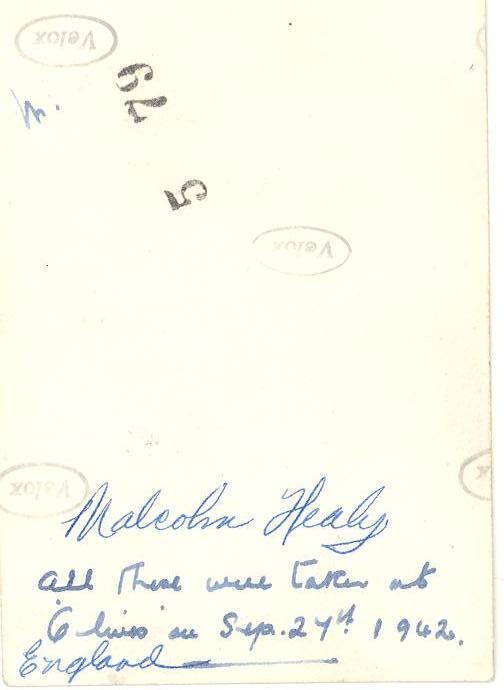 Velox
79
h.
5
Velox
Velox
Malcolm Healy
all these were taken at
on Sep. 27th 1942.
England